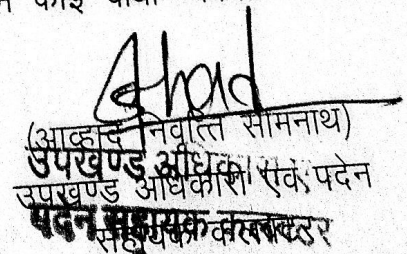 कोई
(आव्हाद निवृत्ति सोमनाथ)
उपखण्ड अधिकारी
उपखण्ड अधिकारी एवं पदेन
पदेन सहायक कलक्टर
सहायक कलक्टर